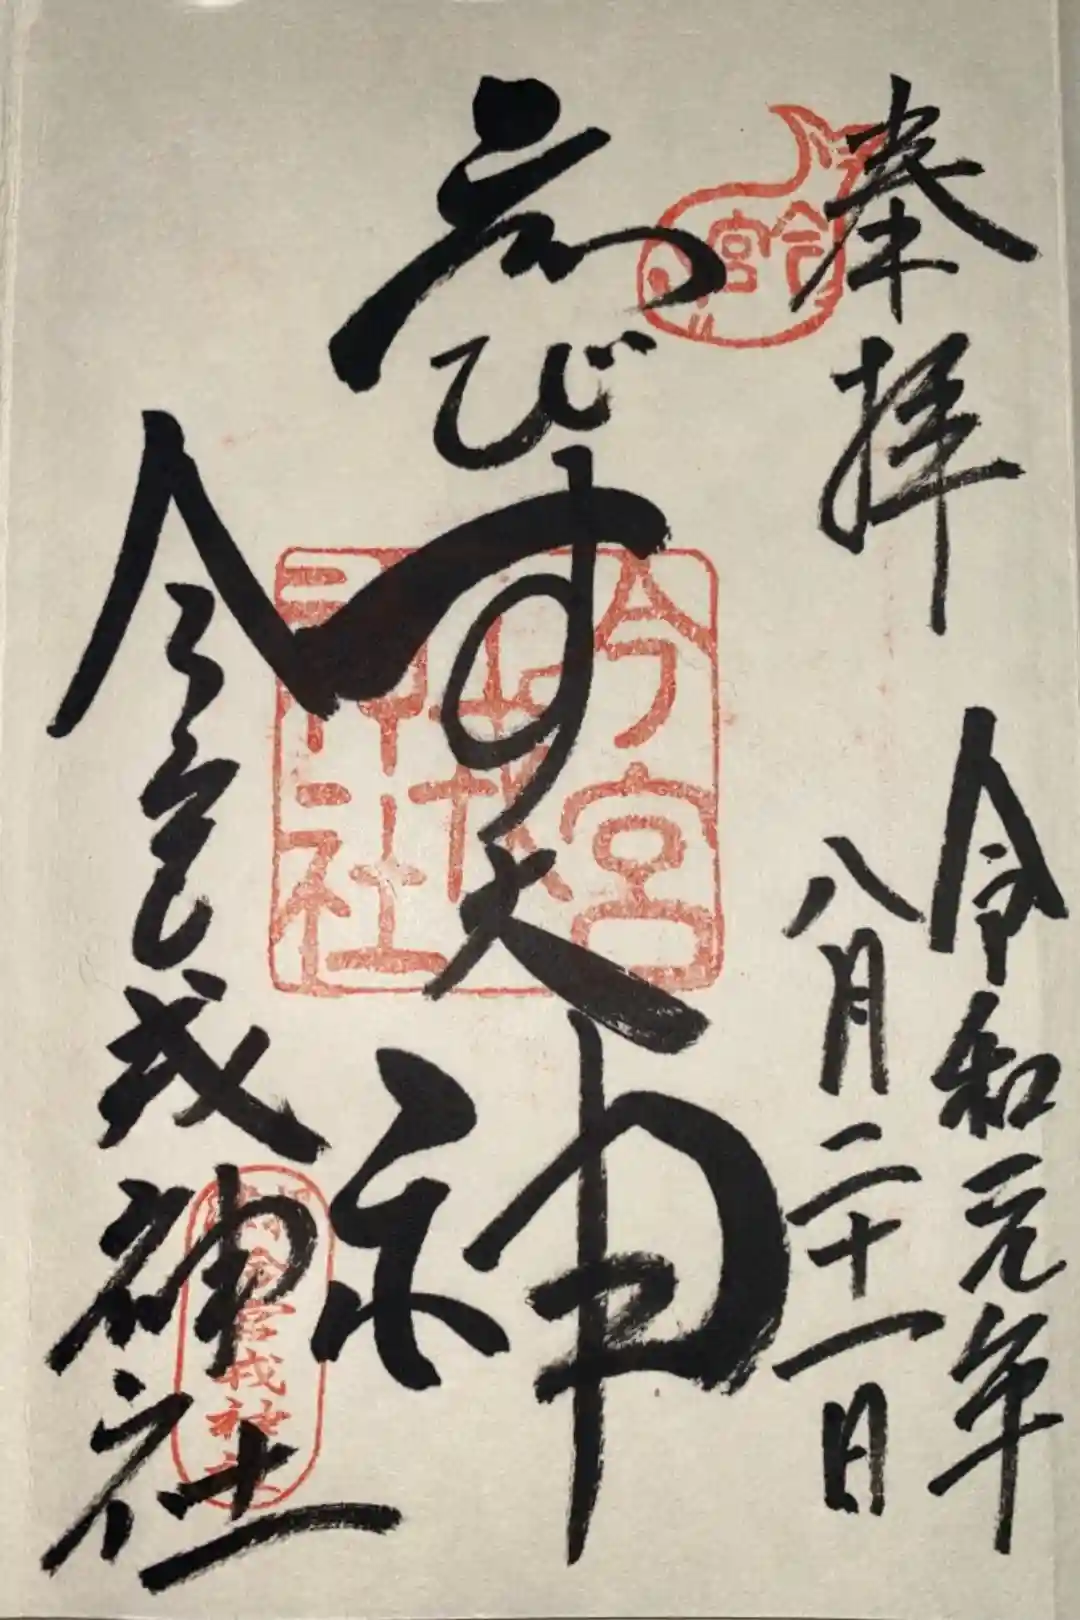 奉拝
令和元年
八月二十一日
ゑびす大神
今宮戎神社
今宮
今宮
戎
神社
今宮戎神社